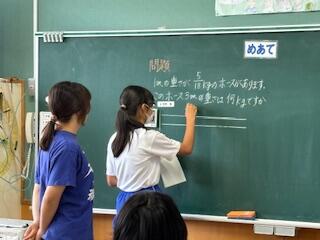 めあて
問題
1mの重さが 5/18 kgのホースがあります。
このホース3mの重さは何kgですか